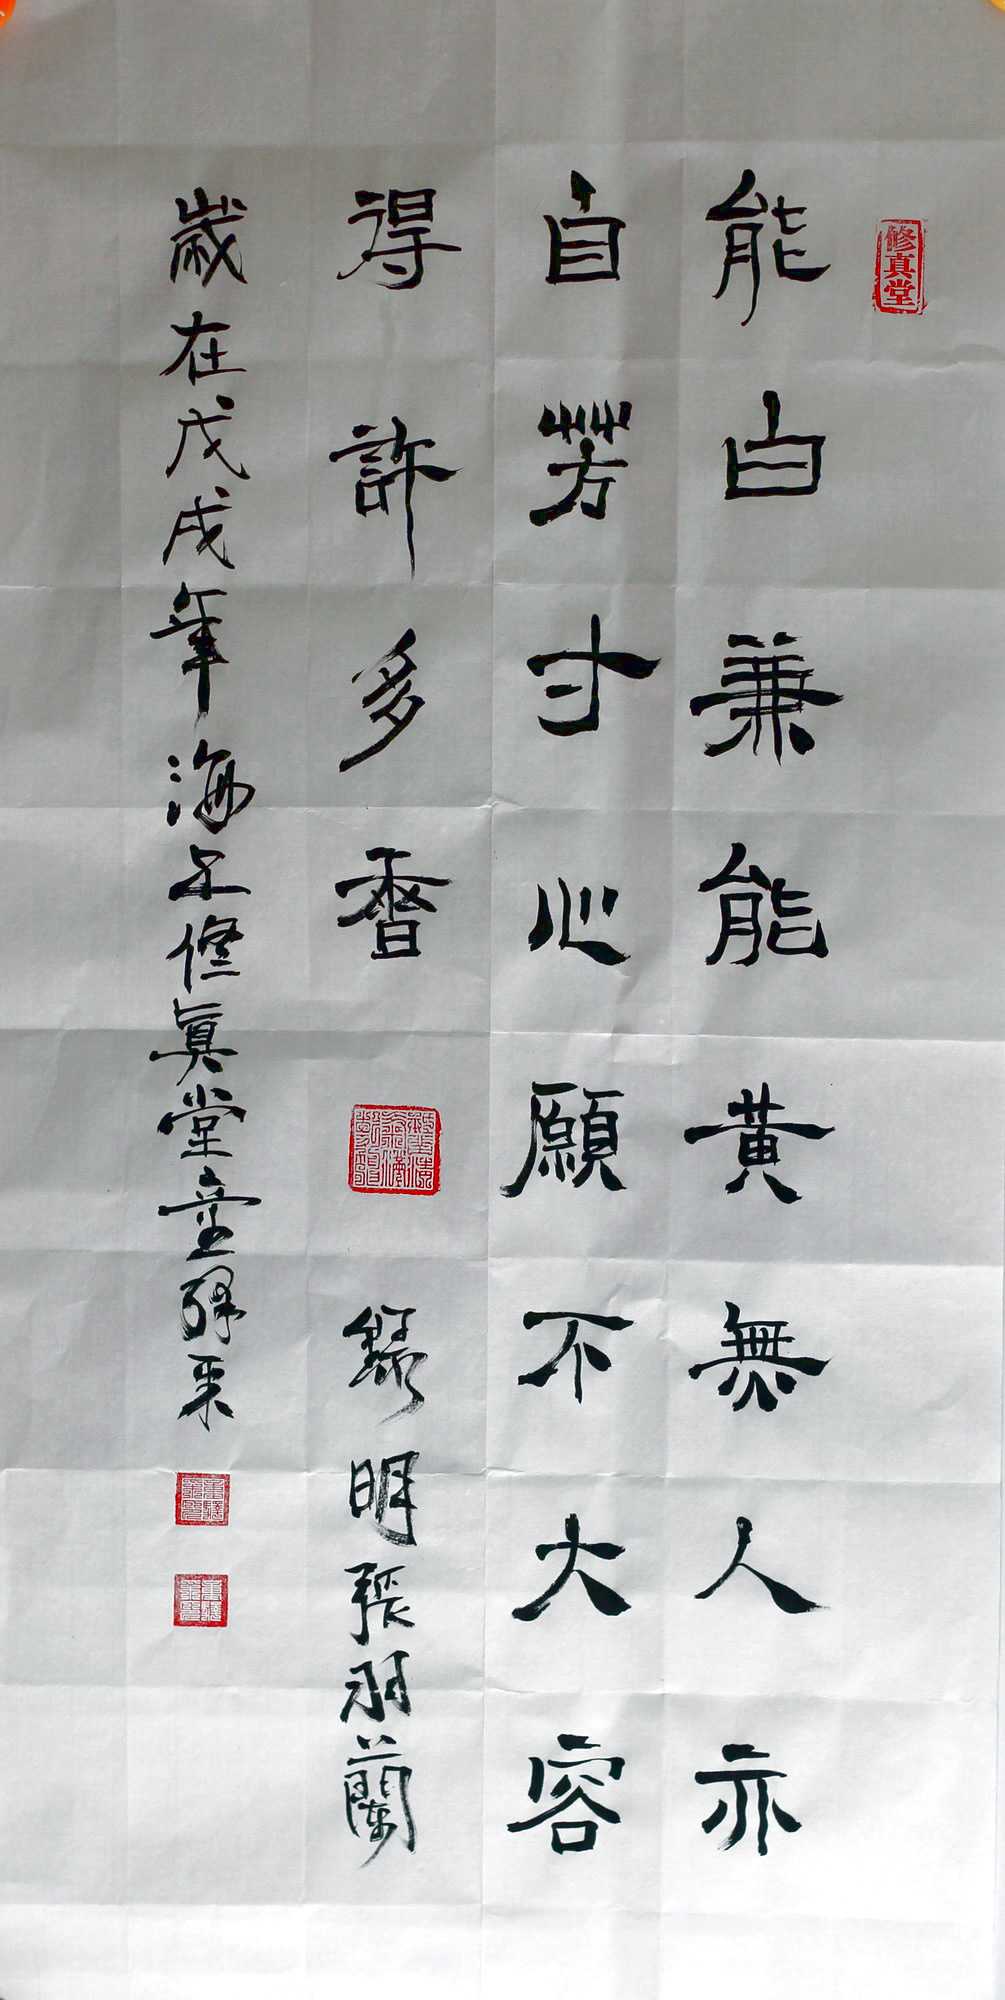 修真堂
能白兼能黃無人亦
自芳寸心願不大容
得許多香
錄明張羽蘭
歲在戊戌年海上修真堂童驛采